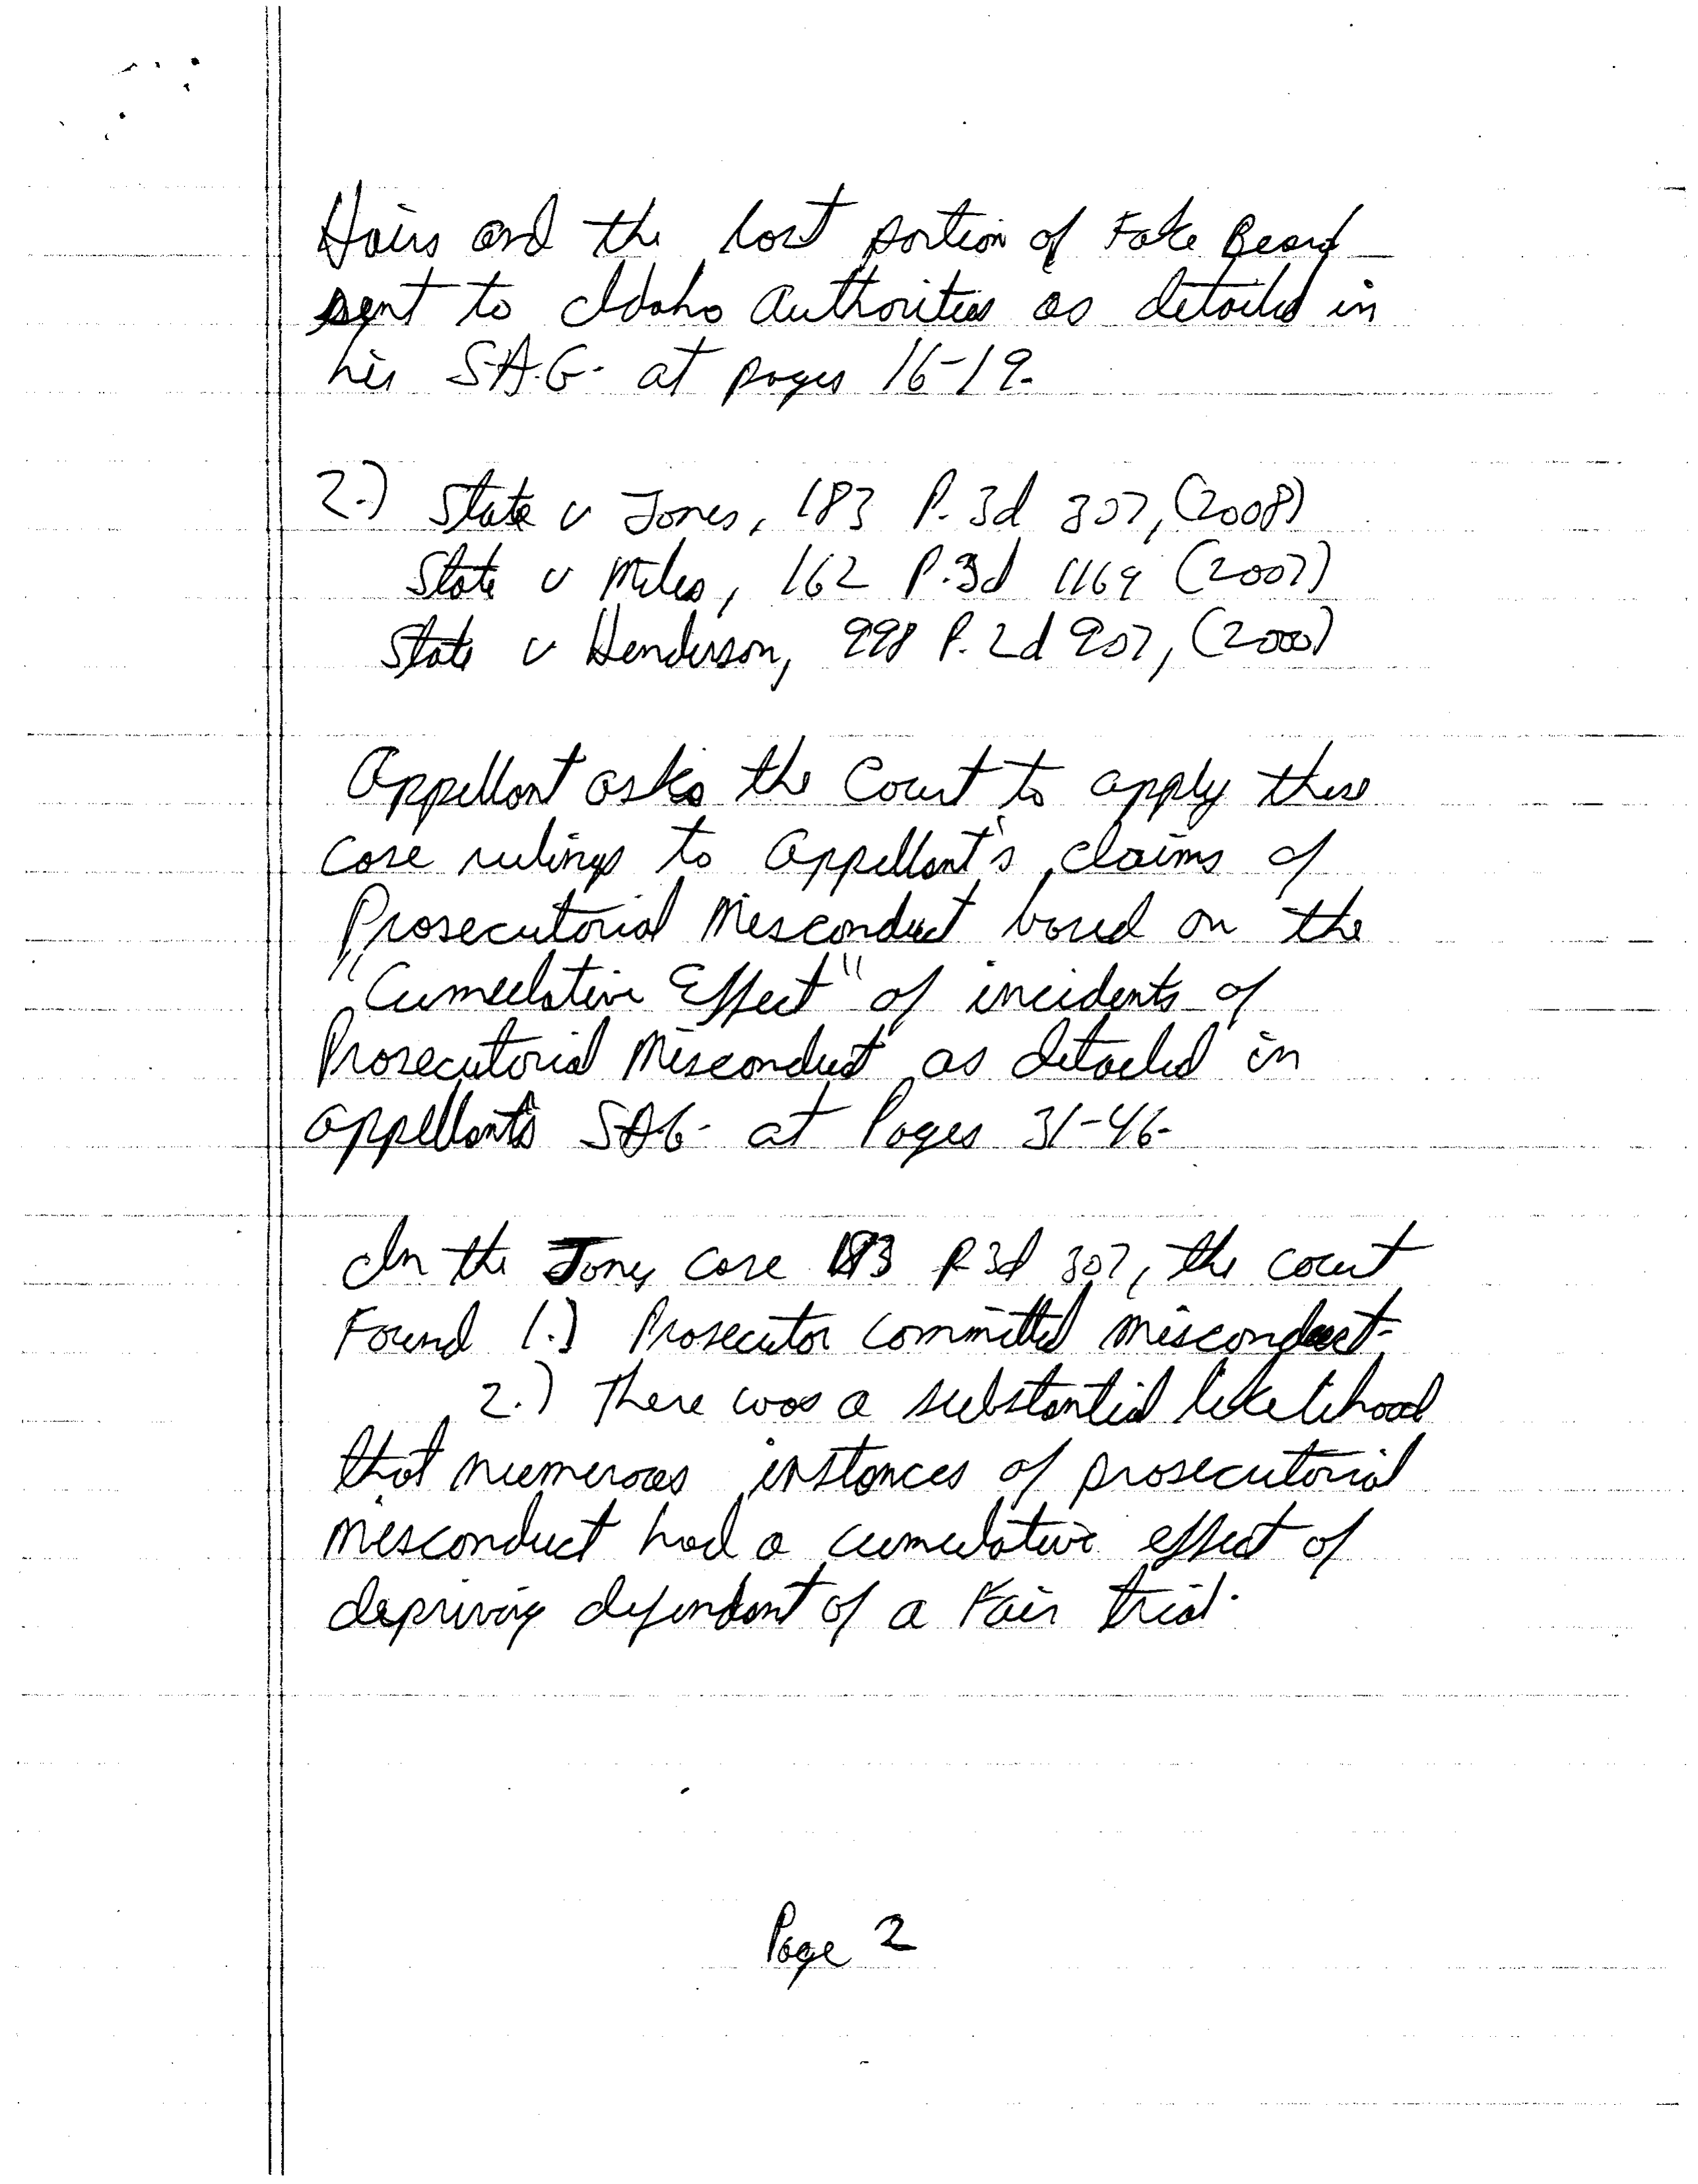 Hairs and the lost portion of Fake Beard
sent to Idaho Authorities as detailed in
his S.A.G. at pages 16-19.
2.) State v Jones, 183 P.3d 307, (2008)
State v Miles, 162 P.3d 1169 (2007)
State v Henderson, 998 P.2d 907, (2000)
Appellant asks the Court to apply these
case rulings to Appellant's claims of
Prosecutorial Misconduct based on the
"Cumulative Effect" of incidents of
Prosecutorial Misconduct as detailed in
appellant's SAG. at Pages 31-46.
In the Jones case 183 P.3d 307, the court
Found 1.) Prosecutor committed misconduct.
2.) There was a substantial likelihood
that numerous instances of prosecutorial
misconduct had a cumulative effect of
depriving defendant of a Fair trial.
Page 2